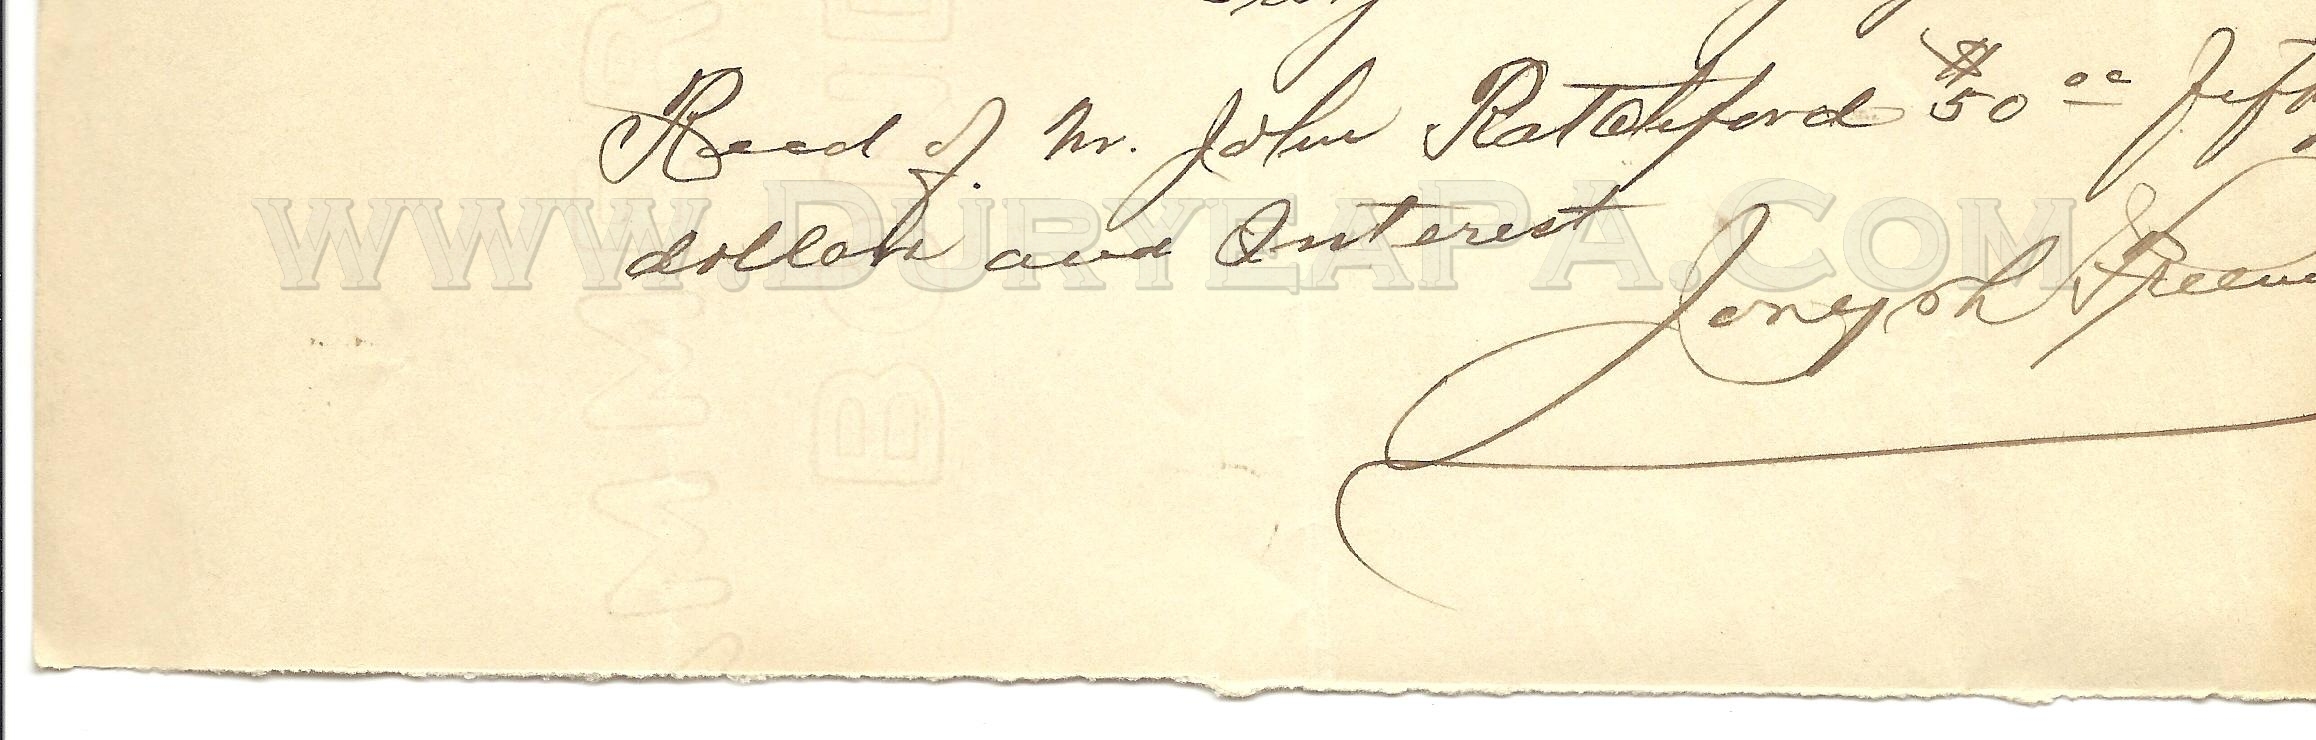 Recd of Mr. John Ratchford $50 00 fifty
dollars and Interest
www.DuryeaPA.Com
Joseph
BOND